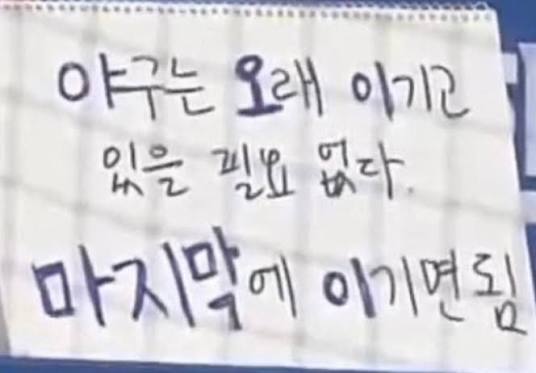 야구는 오래 이기고
있을 필요 없다.
마지막에 이기면 됨